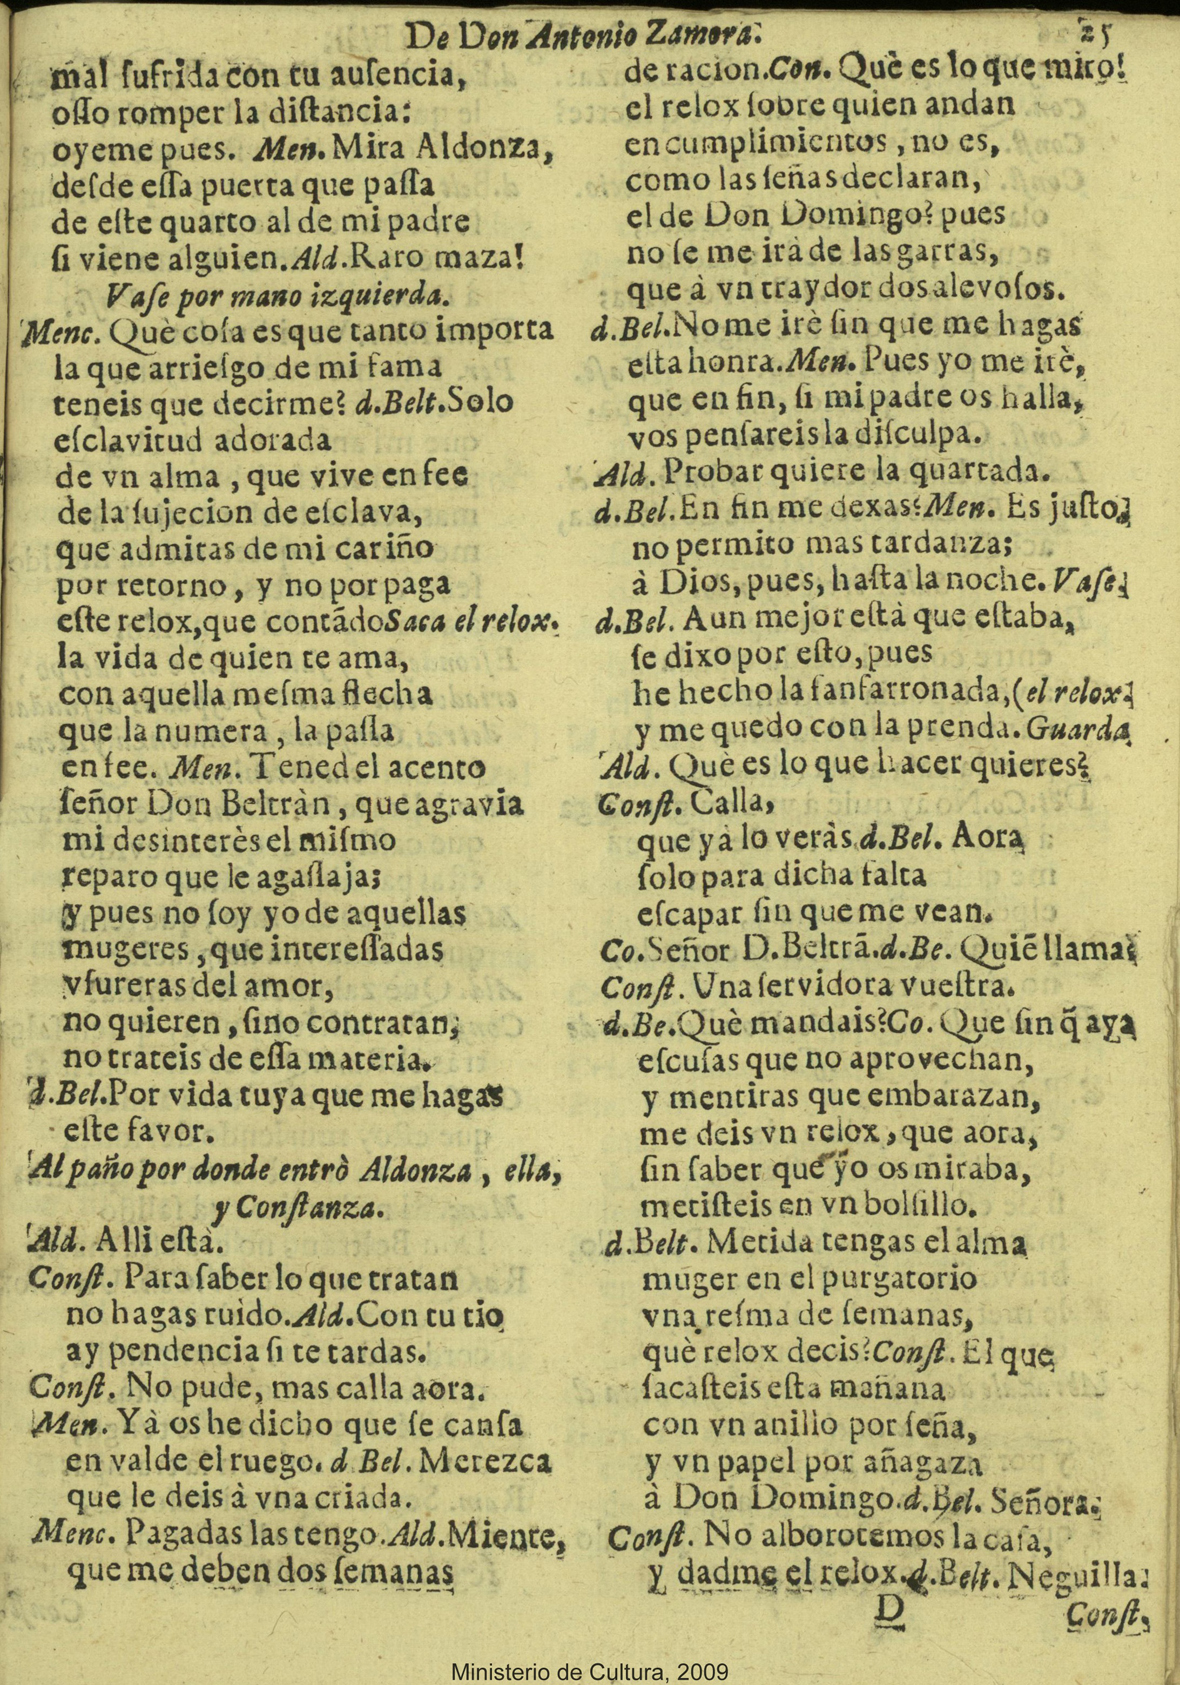 De Don Antonio Zamora. 25
mal sufrida con tu ausencia,
osso romper la distancia:
oyeme pues. Men. Mira Aldonza,
desde essa puerta que passa
de este quarto al de mi padre
si viene alguien. Ald. Raro maza!
Vase por mano izquierda.
Menc. Què cosa es que tanto importa
la que arriesgo de mi fama
teneis que decirme? d.Belt. Solo
esclavitud adorada
de vn alma, que vive en fee
de la sujecion de esclava,
que admitas de mi cariño
por retorno, y no por paga
este relox, que contãdo Saca el relox.
la vida de quien te ama,
con aquella mesma flecha
que la numera, la passa
en fee. Men. Tened el acento
señor Don Beltràn, que agravia
mi desinterès el mismo
reparo que le agassaja;
y pues no soy yo de aquellas
mugeres, que interessadas
vsureras del amor,
no quieren, sino contratan,
no trateis de essa materia.
d.Bel. Por vida tuya que me hagas
este favor.
Al paño por donde entrò Aldonza, ella,
y Constanza.
Ald. Alli està.
Const. Para saber lo que tratan
no hagas ruido. Ald. Con tu tio
ay pendencia si te tardas.
Const. No pude, mas calla aora.
Men. Yà os he dicho que se cansa
en valde el ruego. d Bel. Merezca
que le deis à vna criada.
Menc. Pagadas las tengo. Ald. Miente,
que me deben dos semanas
de racion. Con. Què es lo que miro!
el relox sobre quien andan
en cumplimientos, no es,
como las señas declaran,
el de Don Domingo? pues
no se me irà de las garras,
que à vn traydor dos alevosos.
d.Bel. No me irè sin que me hagas
esta honra. Men. Pues yo me irè,
que en fin, si mi padre os halla,
vos pensareis la disculpa.
Ald. Probar quiere la quartada.
d.Bel. En fin me dexas? Men. Es justo,
no permito mas tardanza;
à Dios, pues, hasta la noche. Vase.
d.Bel. Aun mejor està que estaba,
se dixo por esto, pues
he hecho la fanfarronada, (el relox.
y me quedo con la prenda. Guarda
Ald. Què es lo que hacer quieres?
Const. Calla,
que yà lo veràs. d.Bel. Aora
solo para dicha falta
escapar sin que me vean.
Co. Señor D. Beltrã. d.Be. Quiẽ llama?
Const. Una servidora vuestra.
d.Be. Què mandais? Co. Que sin q̃ aya
escusas que no aprovechan,
y mentiras que embarazan,
me deis vn relox, que aora,
sin saber que yo os miraba,
metisteis en vn bolsillo.
d.Belt. Metida tengas el alma
muger en el purgatorio
vna resma de semanas,
què relox decis? Const. El que
sacasteis esta mañana
con vn anillo por seña,
y vn papel por añagaza
à Don Domingo. d.Bel. Señora.
Const. No alborotemos la casa,
y dadme el relox. d.Belt. Neguilla.
D Const.
Ministerio de Cultura, 2009